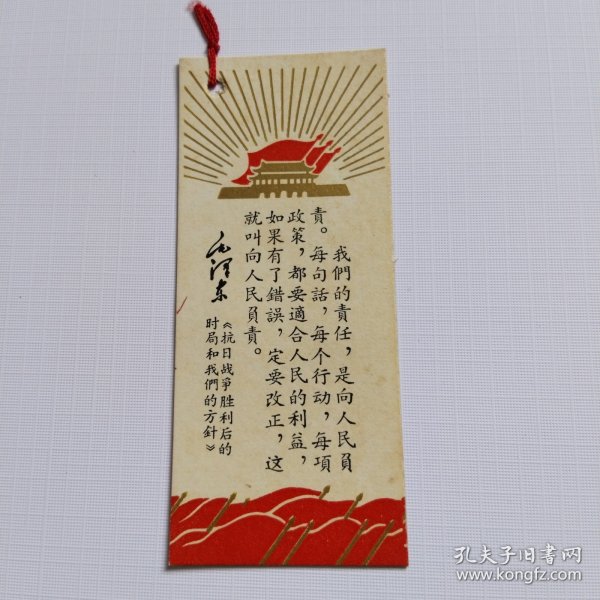 我們的責任，是向人民負
責。每句話，每个行动，每項
政策，都要適合人民的利益，
如果有了錯誤，定要改正，这
就叫向人民負責。
毛泽东
《抗日战爭胜利后的
时局和我們的方針》
孔夫子旧書网
www.kongfz.com